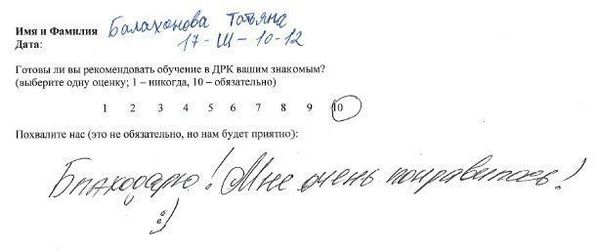 Имя и Фамилия Балахонова Татьяна
Дата: 17-Ш-10-12
Готовы ли вы рекомендовать обучение в ДРК вашим знакомым?
(выберите одну оценку; 1 – никогда, 10 – обязательно)
1 2 3 4 5 6 7 8 9 10
Похвалите нас (это не обязательно, но нам будет приятно):
Благодарю! Мне очень понравилось!
:)